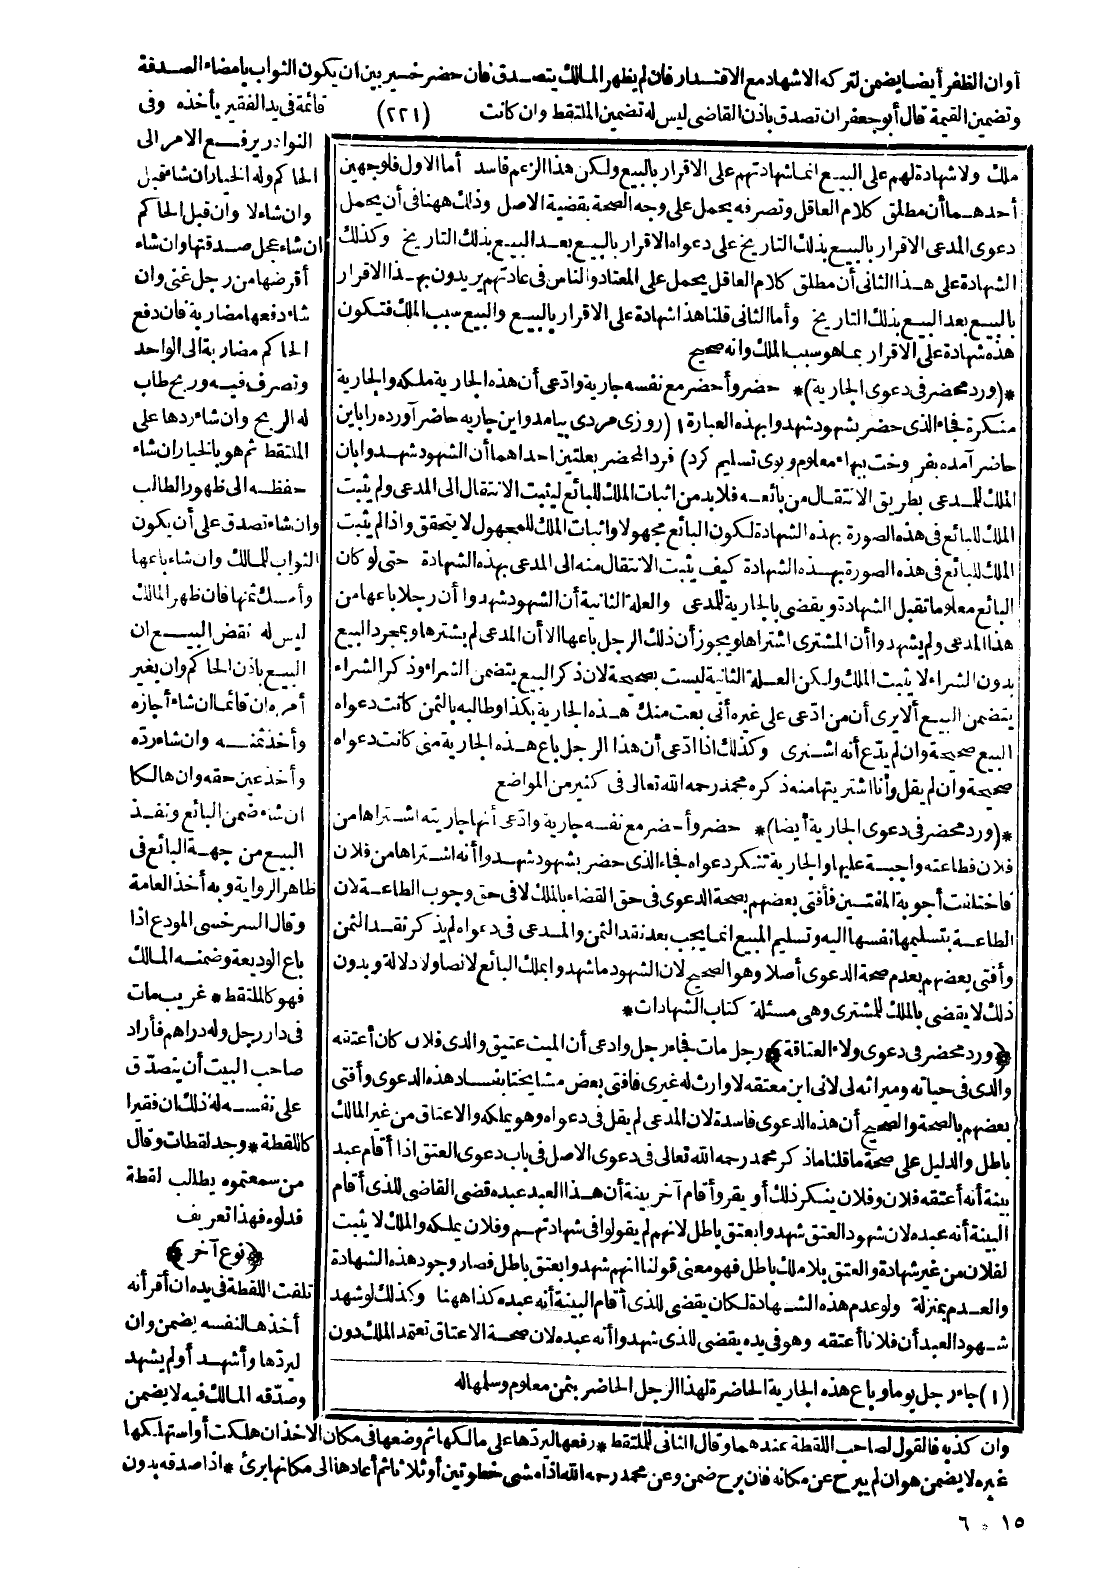 أو ان الظفر أيضا يضمن لتركه الاشهاد مع الاقتدار فان لم يظهر المالك يتصدق فان حضر خير بين ان يكون الثواب بامضاء الصدقة
وتضمين القيمة قال أبو جعفر ان تصدق باذن القاضى ليس له تضمين الملتقط وان كانت
(٢٢١)
قائمة فى يد الفقير يأخذه وفى
النوادر يرفع الامر الى
الحاكم وله الخيار ان شاء قبل
وان شاء لا وان قبل الحاكم
ان شاء عجل صدقتها وان شاء
أقرضها من رجل غنى وان
شاء دفعها مضاربة فان دفع
الحاكم مضاربة الى الواحد
وتصرف فيه وربح طاب
له الربح وان شاء ردها على
الملتقط ثم هو بالخيار ان شاء
حفظه الى ظهور الطالب
وان شاء تصدق على أن يكون
الثواب للمالك وان شاء باعها
وأمسك ثمنها فان ظهر المالك
ليس له نقض البيع ان
البيع باذن الحاكم وان بغير
أمره ان قائما ان شاء أجازه
وأخذ ثمنه وان شاء رده
وأخذ عين حقه وان هالكا
ان شاء ضمن البائع ونفذ
البيع من جهة البائع فى
ظاهر الرواية وبه أخذ العامة
وقال السرخسى المودع اذا
باع الوديعة وضمنه المالك
فهو كالملتقط * غريب مات
فى دار رجل وله دراهم فأراد
صاحب البيت أن يتصدق
على نفسه له ذلك ان فقيرا
كاللقطة * وجد لقطات وقال
من سمعتموه يطالب لقطة
فدلوه فهذا تعريف
﴿نوع آخر﴾
تلفت اللقطة فى يده ان أقر أنه
أخذها لنفسه يضمن وان
ليردها وأشهد أو لم يشهد
وصدقه المالك فيه لا يضمن
ملك ولا شهادة لهم على البيع انما شهادتهم على الاقرار بالبيع ولكن هذا الزعم فاسد أما الاول فلوجهين
أحدهما أن مطلق كلام العاقل وتصرفه يحمل على وجه الصحة بقضية الاصل وذلك ههنا فى أن يحمل
دعوى المدعى الاقرار بالبيع بذلك التاريخ على دعواه الاقرار بالبيع بعد البيع بذلك التاريخ وكذلك
الشهادة على هذا الثانى أن مطلق كلام العاقل يحمل على المعتاد والناس فى عادتهم يريدون بهذا الاقرار
بالبيع بعد البيع بذلك التاريخ وأما الثانى قلنا هذا شهادة على الاقرار بالبيع والبيع سبب الملك فتكون
هذه شهادة على الاقرار بما هو سبب الملك وانه صحيح
*(ورد محضر فى دعوى الجارية)* حضر وأحضر مع نفسه جارية وادعى أن هذه الجارية ملكه والجارية
منكرة فجاء الذى حضر بشهود شهدوا بهذه العبارة ١ (روزى مردى بيامد واين جاريه حاضر آورده را باين
حاضر آمده بفروخت ببهاء معلوم وبوى تسليم كرد) فرد المحضر بعلتين احداهما أن الشهود شهدوا بان
الملك للمدعى بطريق الانتقال من بائعه فلا بد من اثبات الملك للبائع ليثبت الانتقال الى المدعى ولم يثبت
الملك للبائع فى هذه الصورة بهذه الشهادة لكون البائع مجهولا واثبات الملك للمجهول لا يتحقق واذا لم يثبت
الملك للبائع فى هذه الصورة بهذه الشهادة كيف يثبت الانتقال منه الى المدعى بهذه الشهادة حتى لو كان
البائع معلوما تقبل الشهادة ويقضى بالجارية للمدعى والعلة الثانية أن الشهود شهدوا أن رجلا باعها من
هذا المدعى ولم يشهدوا أن المشترى اشتراها ويجوز أن ذلك الرجل باعها الا أن المدعى لم يشترها وبمجرد البيع
بدون الشراء لا يثبت الملك ولكن العلة الثانية ليست بصحيحة لان ذكر البيع يتضمن الشراء وذكر الشراء
يتضمن البيع ألا يرى أن من ادعى على غيره أنى بعت منك هذه الجارية بكذا وطالبه بالثمن كانت دعواه
البيع صحيحة وان لم يدع أنه اشترى وكذلك اذا ادعى أن هذا الرجل باع هذه الجارية منى كانت دعواه
صحيحة وان لم يقل وأنا اشتريتها منه ذكره محمد رحمه الله تعالى فى كثير من المواضع
*(ورد محضر فى دعوى الجارية أيضا)* حضر وأحضر مع نفسه جارية وادعى أنها جاريته اشتراها من
فلان فطاعته واجبة عليها والجارية تنكر دعواه فجاء الذى حضر بشهود شهدوا أنه اشتراها من فلان
فاختلفت أجوبة المفتين فأفتى بعضهم بصحة الدعوى فى حق القضاء بالملك لا فى حق وجوب الطاعة لان
الطاعة بتسليمها نفسها اليه وتسليم المبيع انما يجب بعد نقد الثمن والمدعى فى دعواه لم يذكر نقد الثمن
وأفتى بعضهم بعدم صحة الدعوى أصلا وهو الصحيح لان الشهود ما شهدوا بملك البائع لا نصا ولا دلالة وبدون
ذلك لا يقضى بالملك للمشترى وهى مسئلة كتاب الشهادات *
﴿ورد محضر فى دعوى ولاء العتاقة﴾ رجل مات فجاء رجل وادعى أن الميت عتيق والدى فلان كان أعتقه
والدى فى حياته وميراثه لى لانى ابن معتقه لا وارث له غيرى فأفتى بعض مشايخنا بفساد هذه الدعوى وأفتى
بعضهم بالصحة والصحيح أن هذه الدعوى فاسدة لان المدعى لم يقل فى دعواه وهو يملكه والاعتاق من غير المالك
باطل والدليل على صحة ما قلنا ما ذكر محمد رحمه الله تعالى فى دعوى الاصل فى باب دعوى العتق اذا أقام عبد
بينة أنه أعتقه فلان وفلان ينكر ذلك أو يقر وأقام آخر بينة أن هذا العبد عبده قضى القاضى للذى أقام
البينة أنه عبده لان شهود العتق شهدوا بعتق باطل لانهم لم يقولوا فى شهادتهم وفلان يملكه والملك لا يثبت
لفلان من غير شهادة والعتق بلا ملك باطل فهو معنى قولنا انهم شهدوا بعتق باطل فصار وجود هذه الشهادة
والعدم بمنزلة ولو عدم هذه الشهادة لكان يقضى للذى أقام البينة أنه عبده كذا ههنا وكذلك لو شهد
شهود العبد أن فلانا أعتقه وهو فى يده يقضى للذى شهدوا أنه عبده لان صحة الاعتاق تعتمد الملك دون
(١) جاء رجل يوما وباع هذه الجارية الحاضرة لهذا الرجل الحاضر بثمن معلوم وسلمها له
وان كذبه فالقول لصاحب اللقطة عندهما وقال الثانى للملتقط * رفعها ليردها على مالكها ثم وضعها فى مكان الاخذ ان هلكت أو استهلكها
غيره لا يضمن هو ان لم يبرح عن مكانه فان برح ضمن وعن محمد رحمه الله اذا مشى خطوتين أو ثلاثا ثم أعادها الى مكانها برئ * اذا صدقه بدون
١٥ * ٦